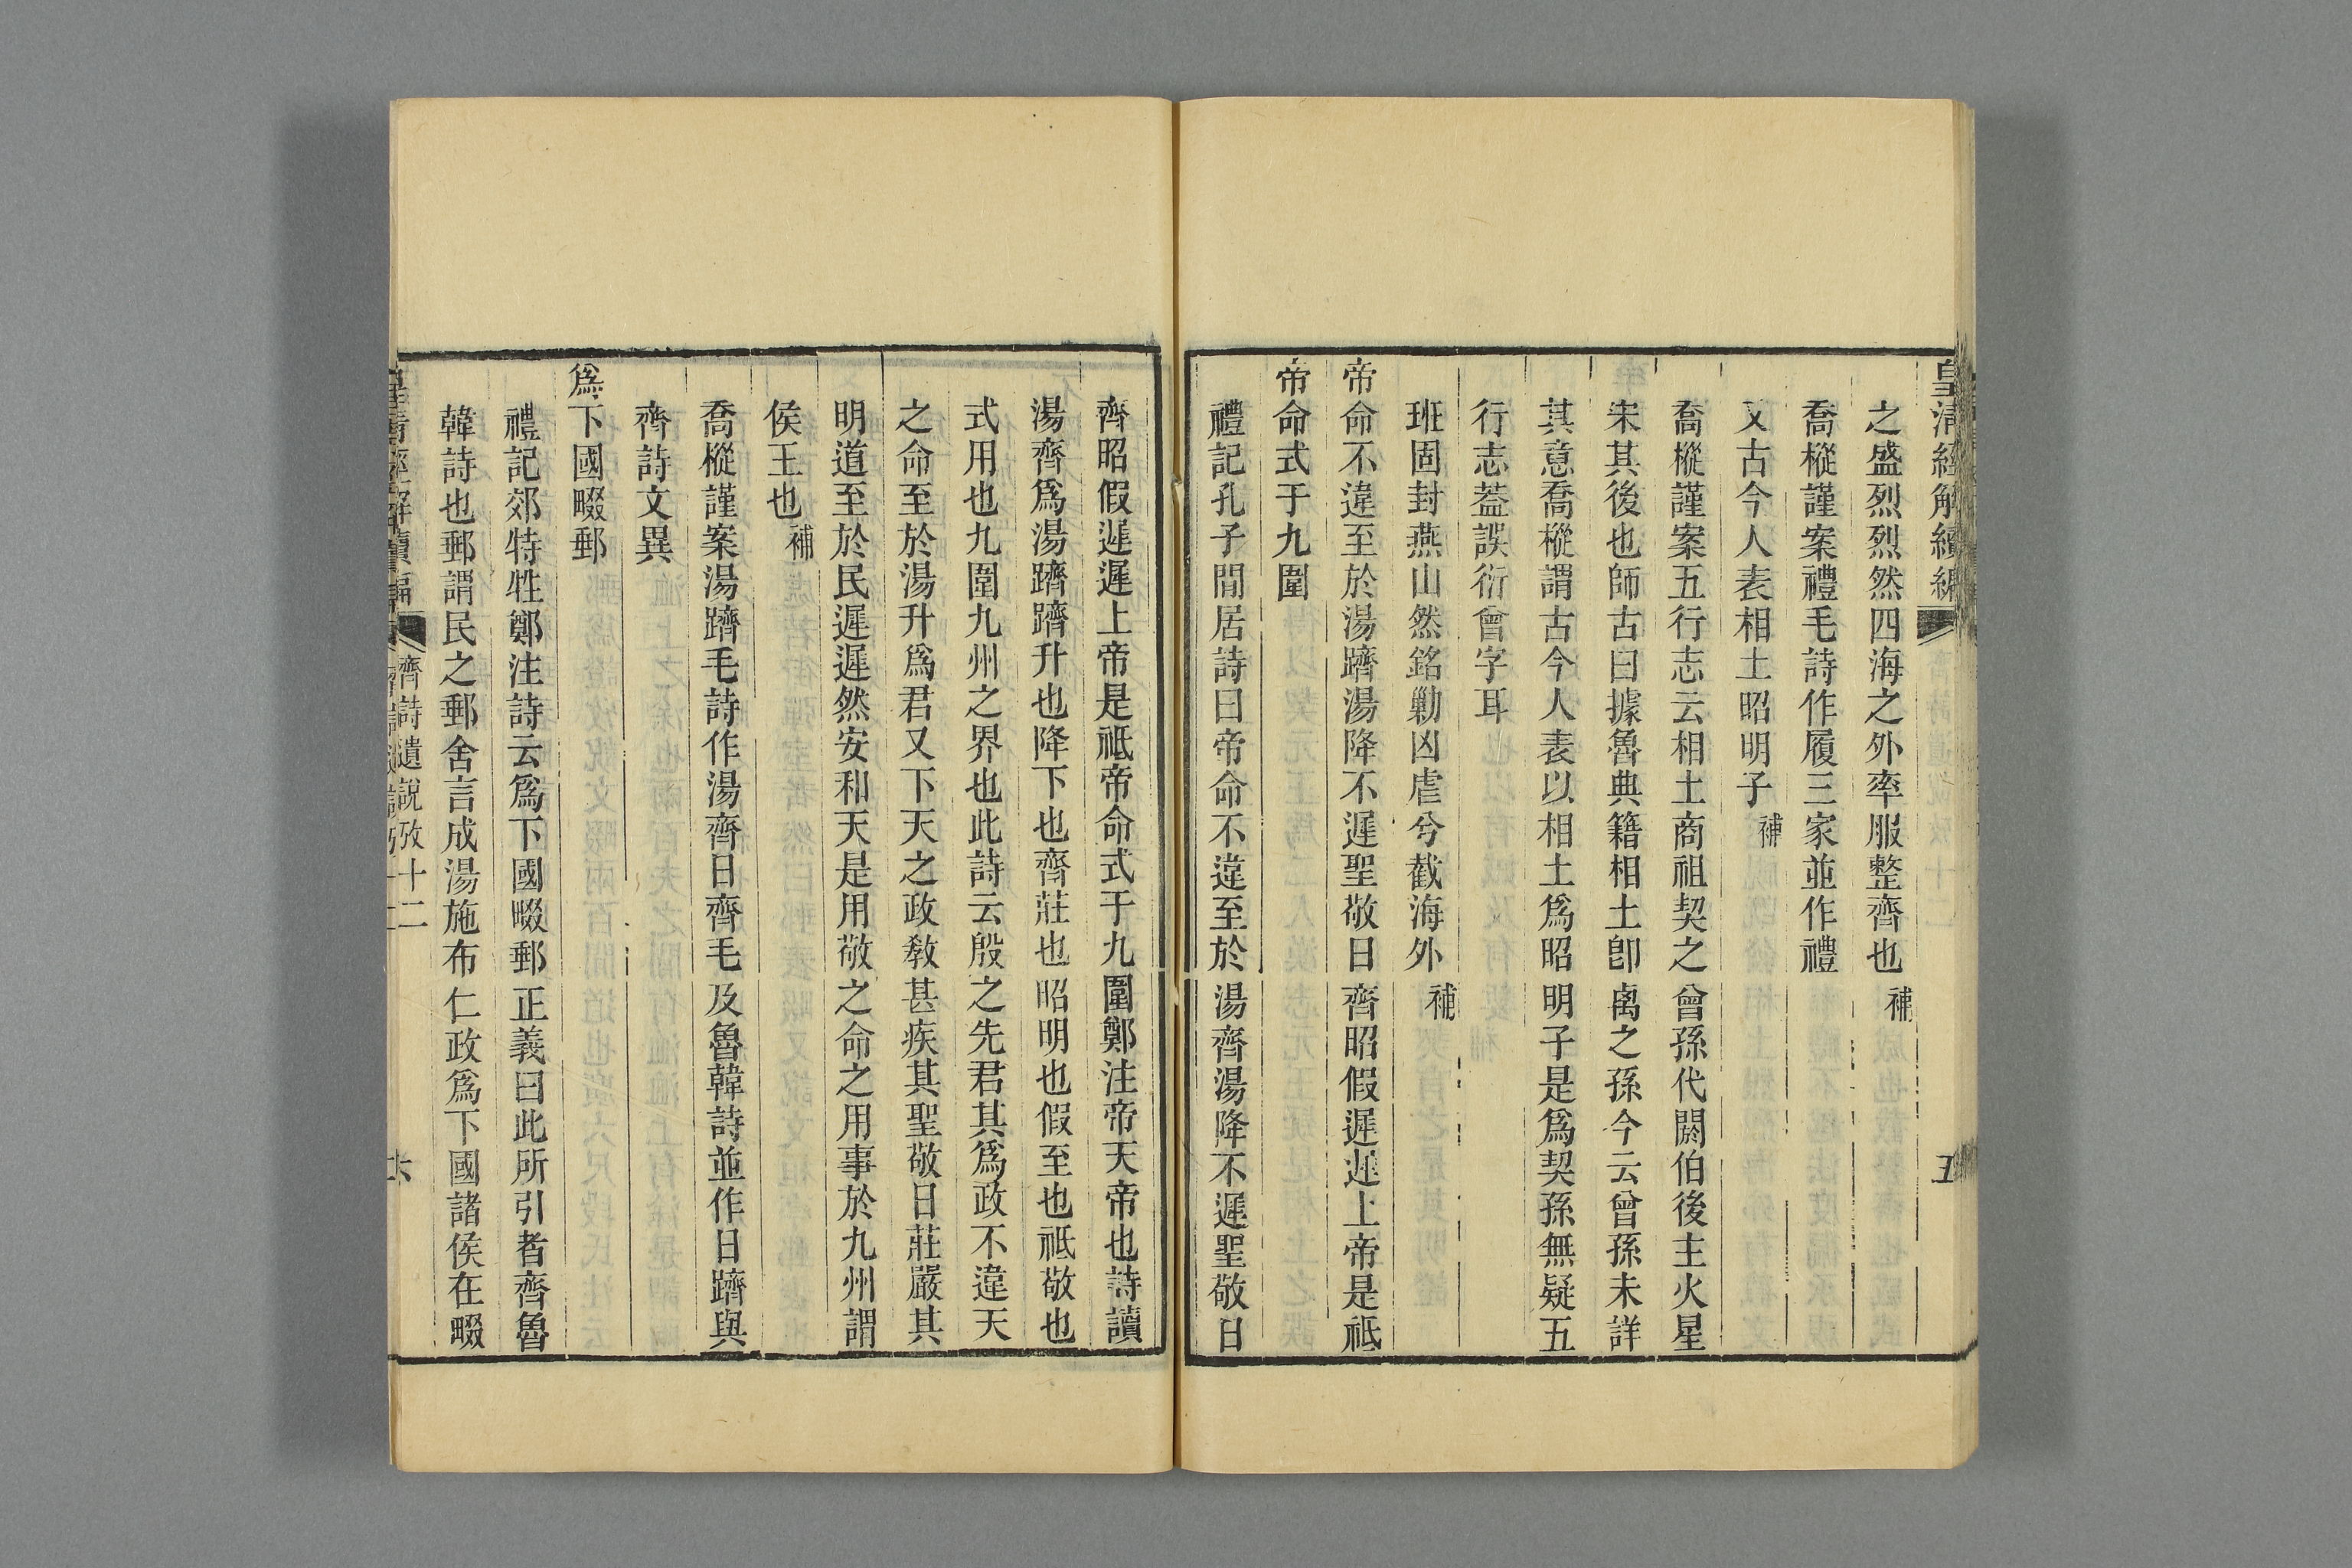 皇清經解續編
五
之盛烈烈然四海之外率服整齊也補
喬樅謹案禮毛詩作履三家並作禮
又古今人表相土昭明子補
喬樅謹案五行志云相土商祖契之曾孫代閼伯後主火星
宋其後也師古曰據魯典籍相土卽禼之孫今云曾孫未詳
其意喬樅謂古今人表以相土爲昭明子是爲契孫無疑五
行志葢誤衍曾字耳
班固封燕山然銘勦凶虐兮截海外補
帝命不違至於湯躋湯降不遲聖敬日齊昭假遲遲上帝是祗
帝命式于九圍
禮記孔子閒居詩曰帝命不違至於湯齊湯降不遲聖敬日
齊昭假遲遲上帝是祗帝命式于九圍鄭注帝天帝也詩讀
湯齊爲湯躋躋升也降下也齊莊也昭明也假至也祗敬也
式用也九圍九州之界也此詩云殷之先君其爲政不違天
之命至於湯升爲君又下天之政敎甚疾其聖敬日莊嚴其
明道至於民遲遲然安和天是用敬之命之用事於九州謂
侯王也補
喬樅謹案湯躋毛詩作湯齊日齊毛及魯韓詩並作日躋與
齊詩文異
爲下國畷郵
禮記郊特牲鄭注詩云爲下國畷郵正義曰此所引者齊魯
韓詩也郵謂民之郵舍言成湯施布仁政爲下國諸侯在畷
皇清經解續編
齊詩遺說攷十二
六